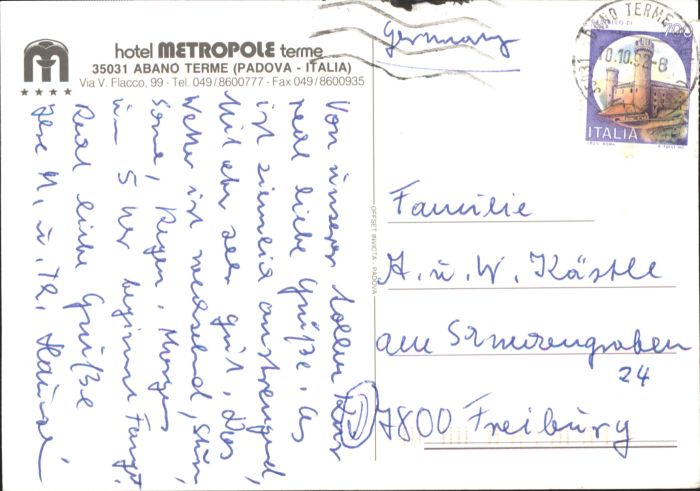 hotel METROPOLE terme
35031 ABANO TERME (PADOVA - ITALIA)
Via V. Flacco, 99 - Tel. 049/8600777 - Fax 049/8600935
Von unserer tollen Kur
recht liebe Grüße. Es
ist ziemlich anstrengend,
tut aber sehr gut. Das
Wetter ist wechselnd,
Sonne, Regen. Morgens
um 5 Uhr beginnt Fango.
Recht liebe Grüße
Ihre H. u.
OFFSET INVICTA - PADOVA
Germany
ABANO TERME
35031
10.10.92-8
ITALIA
Familie
A. u. W. Kästle
am Sonnengraben
24
D 7800 Freiburg